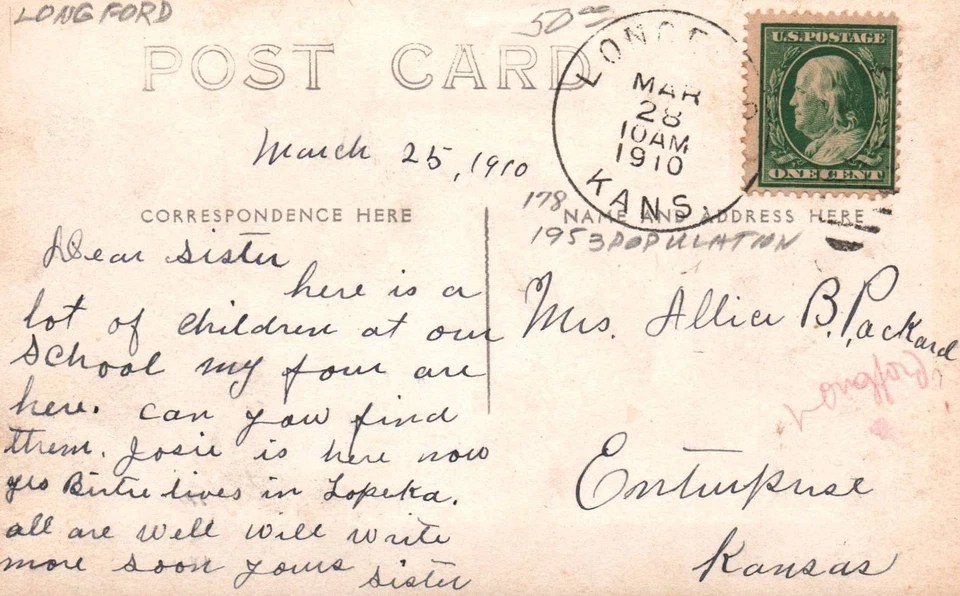 LONGFORD
50.00
POST CARD
LONGF
MAR
28
10AM
1910
KANS.
U.S. POSTAGE
ONE CENT
March 25, 1910
CORRESPONDENCE HERE
178
NAME AND ADDRESS HERE
1953 POPULATION
Dear Sister
here is a
lot of children at our
School my four are
here. can you find
them. Josie is here now
yes Birtie lives in Topeka.
all are well will write
more soon yours
sister
Mrs. Allice B. Packard
Longford
Enterprise
Kansas